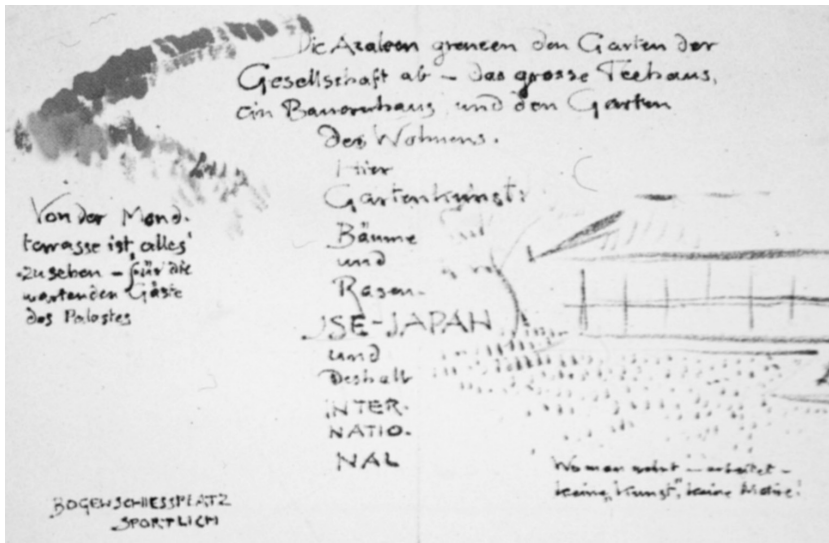 Die Azaleen grenzen den Garten der
Gesellschaft ab – das grosse Teehaus,
ein Bauernhaus und den Garten
des Wohnens.
Hier
Gartenkunst:
Bäume
und
Rasen.
ISE-JAPAN
und
Deshalb
INTER-
NATIO-
NAL
Von der Mond-
terrasse ist alles
zu sehen – für die
wartenden Gäste
des Palastes
BOGENSCHIESSPLATZ
SPORTLICH
Wo man wohnt – arbeitet –
keine "Kunst", keine Motive!